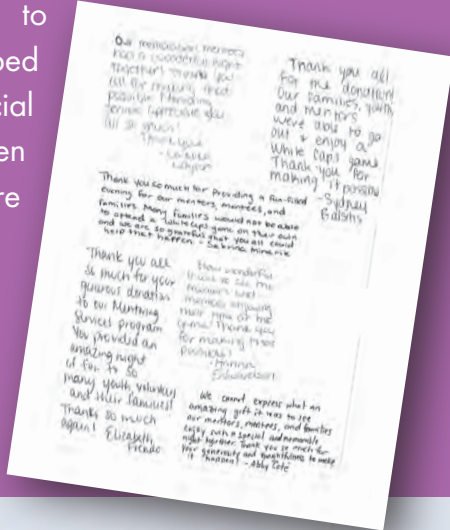 to
ped
cial
en
re
Our mentors and mentees
had a wonderful night
together! Thank you
all for making it
possible!
all so much!
Thank you
Thank you all
for the donation!
Our families, youth
and mentors
were able to go
out & enjoy a
White Caps game.
Thank you for
making it possible
-Sydney
Thank you so much for Providing a fun-filled
evening for our mentors, mentees, and
families. Many families would not be able
to attend a Whitecaps game on their own
and we are so grateful that you all could
help that happen - Sabrina
Thank you all
so much for your
generous donation
to our Mentoring
Services program
You provided an
amazing night
of fun to so
many youth, volunteers
and their families!
Thanks so much
again! Elizabeth
Prendo
How wonderful
it was to see the
mentors and
mentees enjoying
their time at the
game! Thank you
for making this
possible!
-Hanna
We cannot express what an
amazing gift it was to see
our mentors, mentees, and families
enjoy such a special and memorable
night together. Thank you so much for
your generosity and thoughtfulness to make
it happen! - Abby Tote